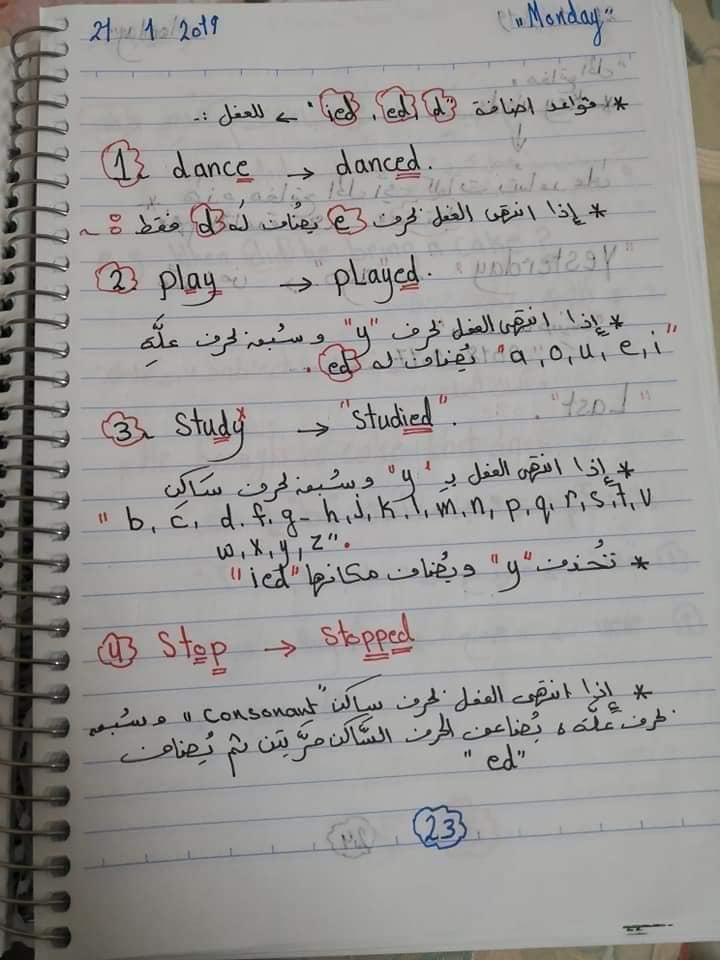 21 1 2019 "Monday"
* قواعد اضافة "d, ed, ied" للفعل :-
1 dance → danced.
* إذا انتهى الفعل بحرف e يضاف له d فقط
2 play → played.
* إذا انتهى الفعل بحرف "y" وسُبق بحرف علَّه
"a, o, u, e, i" يُضاف له ed.
3 Study → "studied".
* إذا انتهى الفعل بـ "y" وسُبق بحرف ساكن
"b, c, d, f, g - h, j, k, l, m, n, p, q, r, s, t, v
w, x, y, z".
* تُحذف "y" ويُضاف مكانها "ied"
4 Stop → Stopped
* إذا انتهى الفعل بحرف ساكن "consonant" وسُبق
بحرف علَّه، يُضاعف الحرف السَّاكن مرَّتين ثم يُضاف
"ed"
23